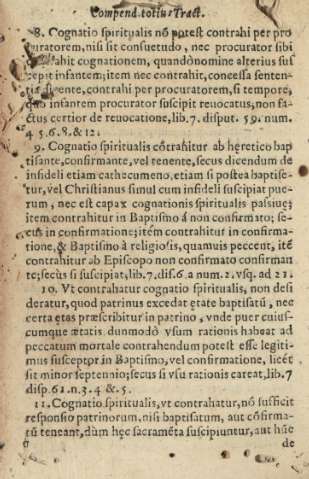 Compend.totius Tract.
8. Cognatio spiritualis nõ potest contrahi per pro
curatorem, nisi sit consuetudo, nec procurator sibi
contrahit cognationem, quandònomine alterius sus
cepit infantem; item nec contrahit, concessa senten-
tia dicente, contrahi per procuratorem, si tempore,
quo infantem procurator suscipit reuocatus, non fa-
ctus certior de reuocatione, lib. 7. disput. 59. num.
4 5. 6. 8. & 12.
9. Cognatio spiritualis cõtrahitur ab hęretico bap
tisante, confirmante, vel tenente, secus dicendum de
infideli etiam cathecumeno, etiam si postea baptise-
tur, vel Christianus simul cum infideli suscipiat pue-
rum, nec est capax cognationis spiritualis passiuę;
item contrahitur in Baptismo à non confirmato; se-
cus in confirmatione; itẽm contrahitur in confirma-
tione, & Baptismo à religiosis, quamuis peccent, itẽ
contrahitur ab Episcopo non confirmato confirman-
te; secùs si suscipiat, lib. 7. dis. 6 a num. 2. vsq. ad 21.
10. Vt contrahatur cognatio spiritualis, non desi
deratur, quod patrinus excedat ętate baptisatũ, nec
certa ętas præscribitur in patrino, vnde puer cuius-
cumque ætatis dunmodò vsum rationis habeat ad
peccatum mortale contrahendum potest esse legiti-
mus susceptor in Baptismo, vel confirmatione, licét
sit minor septennaio; secus si vsu rationis careat, lib. 7
disp. 61. n. 3. 4 & 5.
11. Cognatio spiritualis, vt contrahatur, nõ sufficit
responsio patrinorum, nisi baptisatum, aut cõfirma-
tũ teneant, dùm hęc sacramẽta suscipiuntur, aut hũc
de